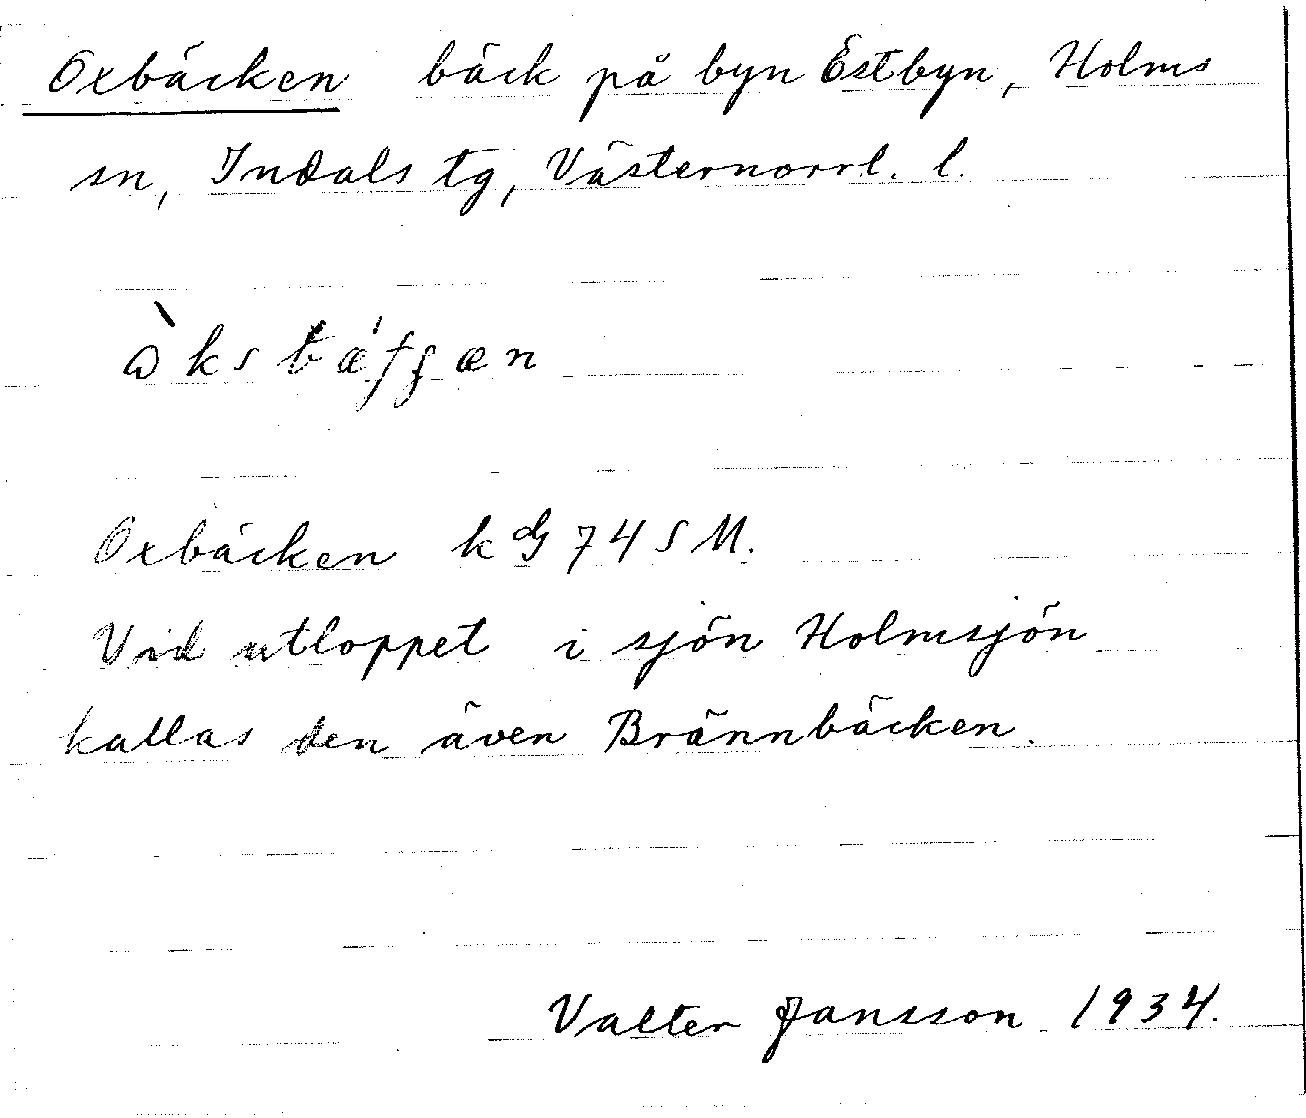 Oxbäcken bäck på byn Östbyn, Holms
sn, Indals tg, Västernorrl. l.
Oxbäcken k dG 74 SM.
Vid utloppet i sjön Holmsjön
kallas den även Brännbäcken.
Valter Jansson 1934.